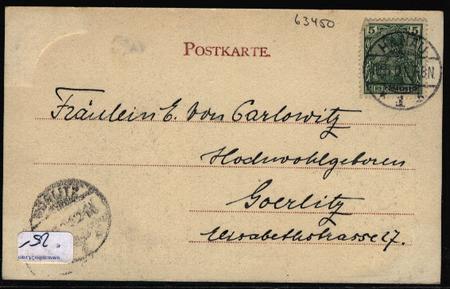 63450
POSTKARTE.
5 5
HANAU
8N.
Fräulein E. von Carlowitz
Hochwohlgeboren
Goerlitz
Elisabethstrasse 27.
GÖRLITZ